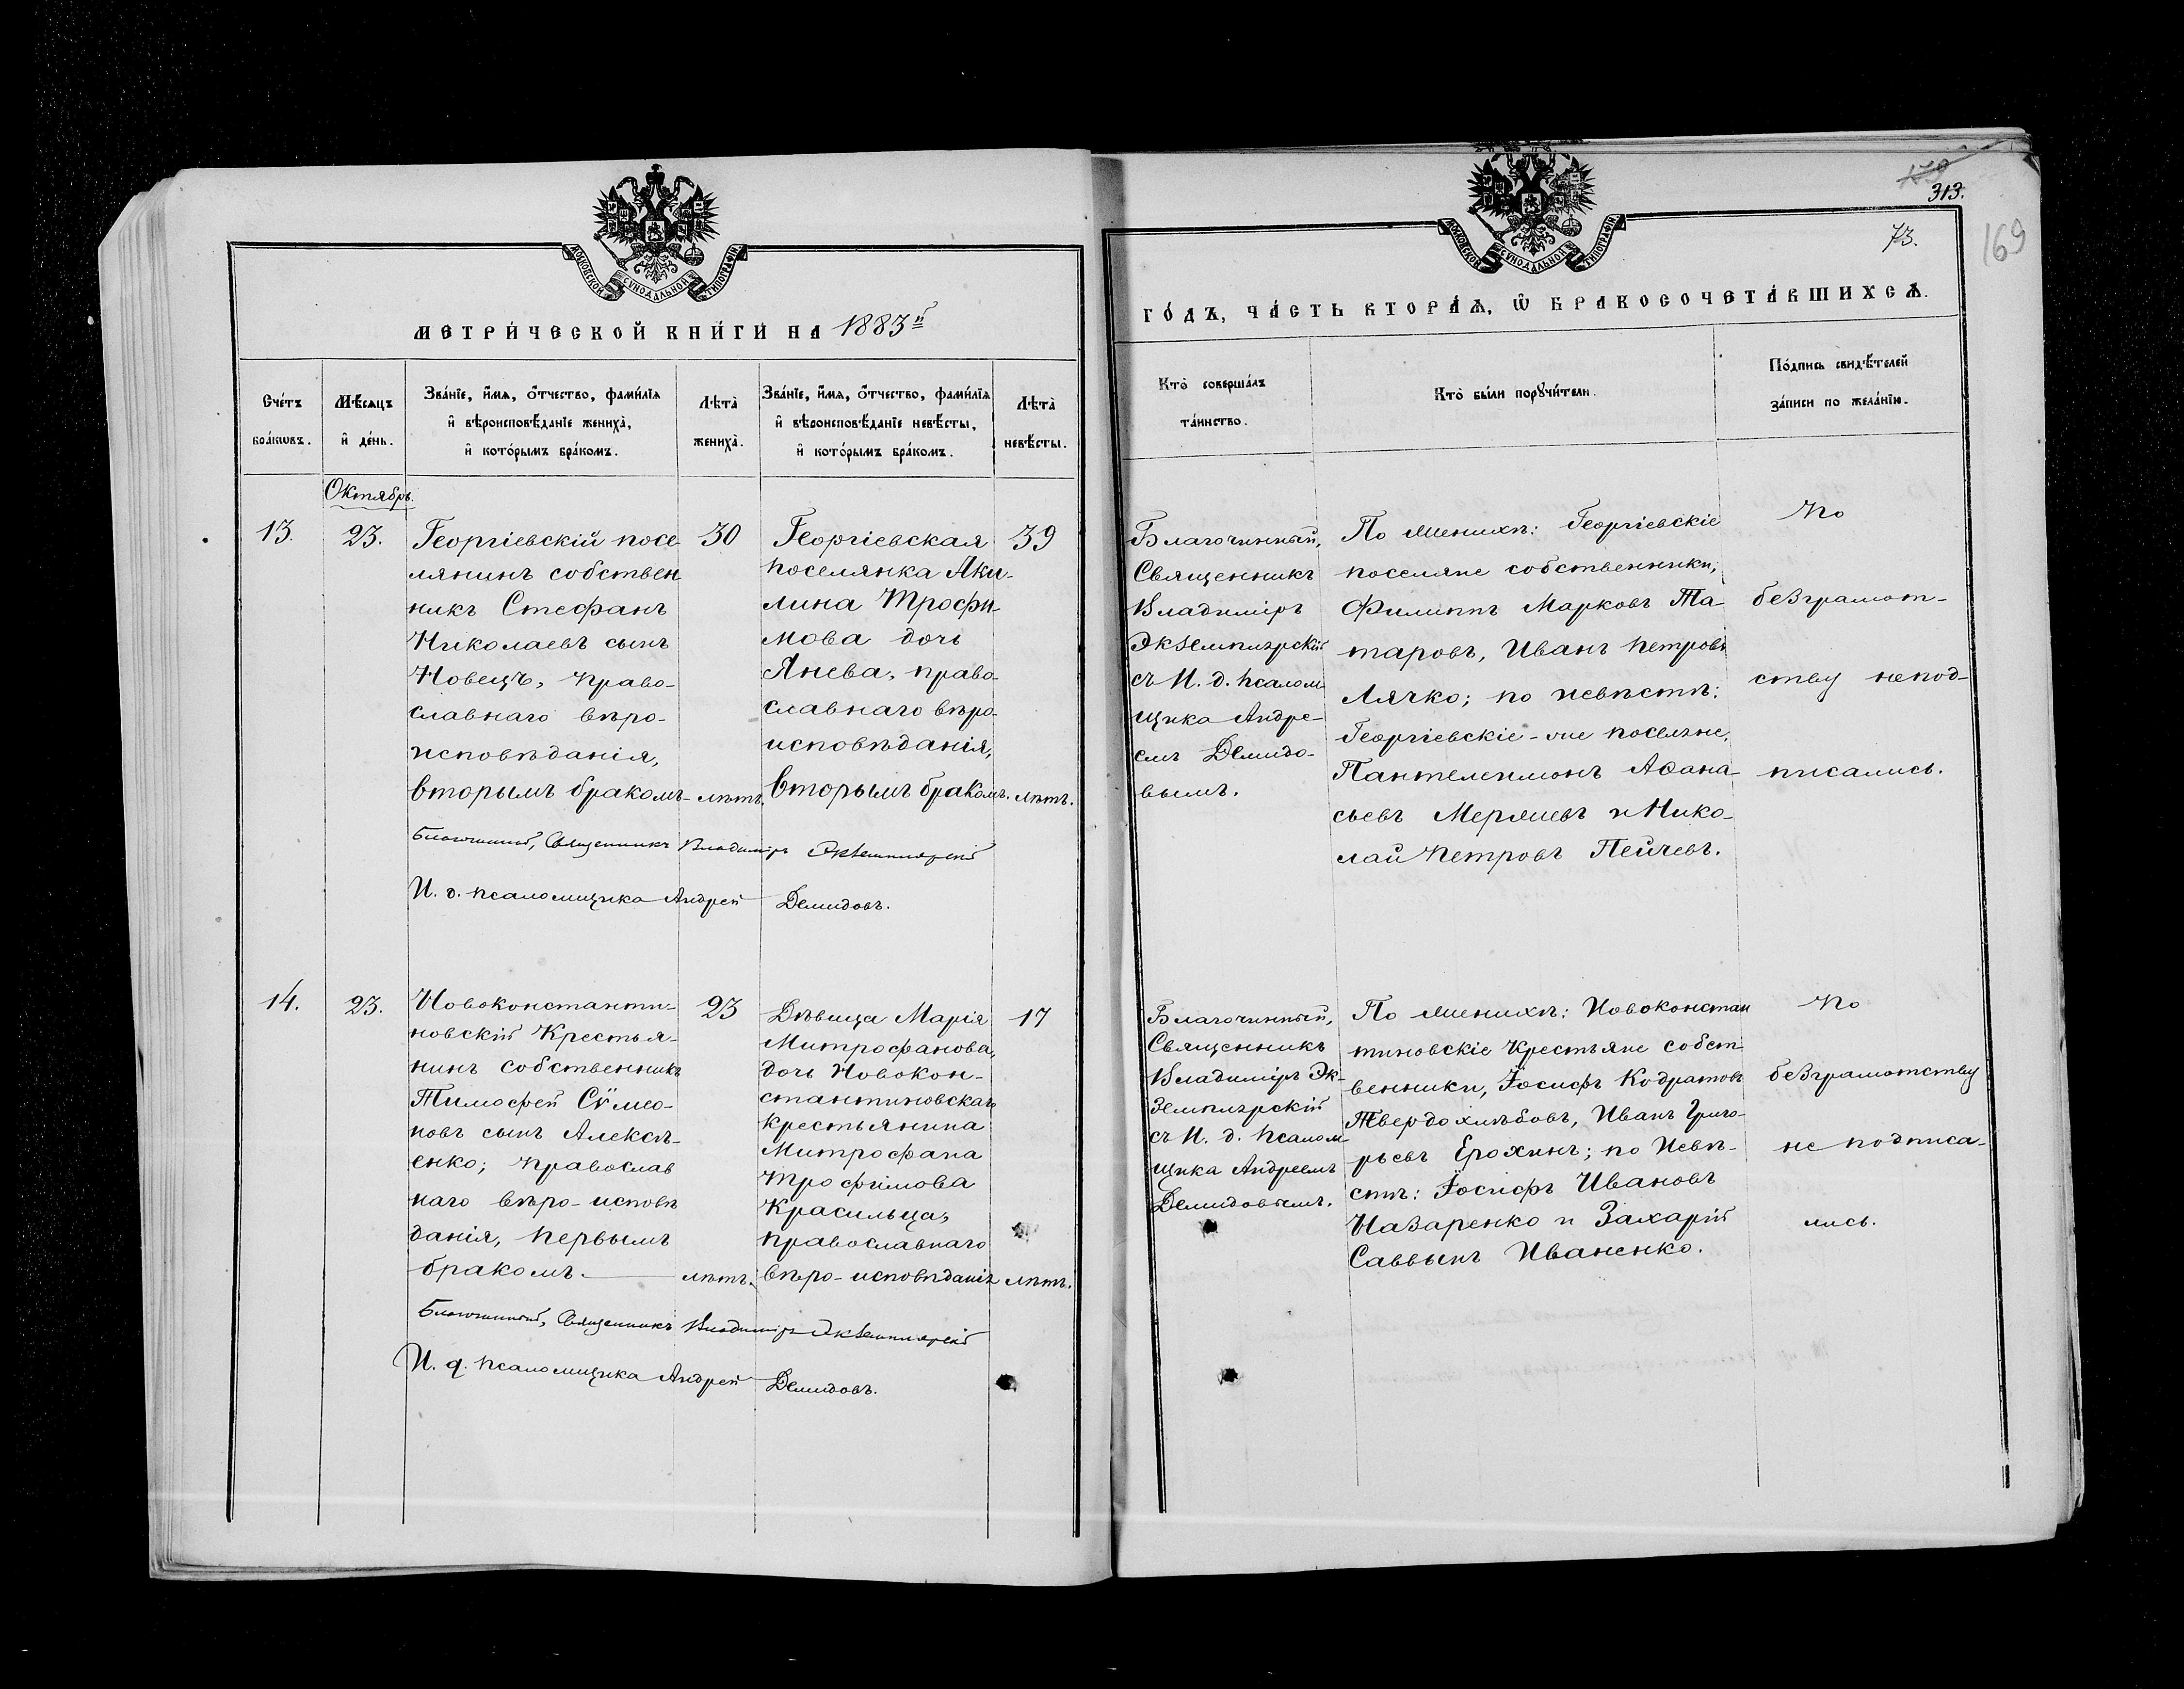 МОСКОВСКОЙ СѴНОДАЛЬНОЙ ТИПОГРАФІИ
МЕТРИ́ЧЕСКОЙ КНИ́ГИ НА 1883й
Сче́тъ бра́ковъ.
Мѣ́сяцъ и҆ де́нь.
Зва́нїе, и҆́мѧ, ѻ҆́тчество, фами́лїѧ
и҆ вѣроисповѣ́данїе жениха̀,
и҆ кото́рымъ бра́комъ.
Лѣта̀ жениха̀.
Зва́нїе, и҆́мѧ, ѻ҆́тчество, фами́лїѧ
и҆ вѣроисповѣ́данїе невѣ́сты,
и҆ кото́рымъ бра́комъ.
Лѣта̀ невѣ́сты.
Октябрь.
13.
23.
Георгіевскій посе-
лянинъ собствен
никъ Стефанъ
Николаевъ сынъ
Новецъ, право-
славнаго вѣро-
исповѣданія,
вторымъ бракомъ-
30
лѣтъ.
Георгіевская
поселянка Аки-
лина Трофи-
мова дочь
Янева, право-
славнаго вѣро-
исповѣданія,
вторымъ бракомъ.
39
лѣтъ.
Благочинный, Священникъ Владиміръ Экземплярскій
И. д. псаломщика Андрей Демидовъ.
14.
23.
Новоконстанти-
новскій Крестья-
нинъ собственникъ
Тимофей Сѵмео-
новъ сынъ Алексѣ-
енко; Православ
наго вѣро-исповѣ
данія, первымъ
бракомъ.
23
лѣтъ.
Дѣвица Марія
Митрофанова,
дочь Новокон-
стантиновскаго
крестьянина
Митрофана
Трофимова
Красильца,
православнаго
вѣро-исповѣданія
17
лѣтъ.
Благочинный, Священникъ Владиміръ Экземплярскій
И. д. псаломщика Андрей Демидовъ.
179
313.
73.
169
МОСКОВСКОЙ СѴНОДАЛЬНОЙ ТИПОГРАФІИ
ГО́ДЪ, ЧА́СТЬ ВТОРА́Ѧ, Ѽ БРАКОСОЧЕТА́ВШИХСѦ.
Кто̀ соверша́лъ та́инство.
Кто̀ бы́ли порꙋчи́тели.
По́дпись свидѣ́телей
за́писи по жела́нїю.
Благочинный,
Священникъ
Владиміръ
Экземплярскій
съ И. д. псалом-
щика Андре-
емъ Демидо-
вымъ.
По женихѣ: Георгіевскіе
поселяне собственники,
Филиппъ Марковъ Та-
таровъ, Иванъ Петровъ
Лячко; по невѣстѣ:
Георгіевскіе-же поселяне,
Пантелеимонъ Аѳана-
сьевъ Мержиевъ и Нико-
лай Петровъ Пейчевъ.
По
безграмот-
ству непод-
писались.
Благочинный,
Священникъ
Владиміръ Эк-
земплярскій
съ И. д. псалом-
щика Андреемъ
Демидовымъ.
По женихѣ: Новоконстан
тиновскіе Крестьяне собст-
венники, Іосифъ Кодратовъ
Твердохлѣбовъ, Иванъ Григо-
рьевъ Ерохинъ; по Невѣ-
стѣ: Іосифъ Ивановъ
Назаренко и Захарій
Саввынъ Иваненко.
По
безграмотству
не подписа-
лись.